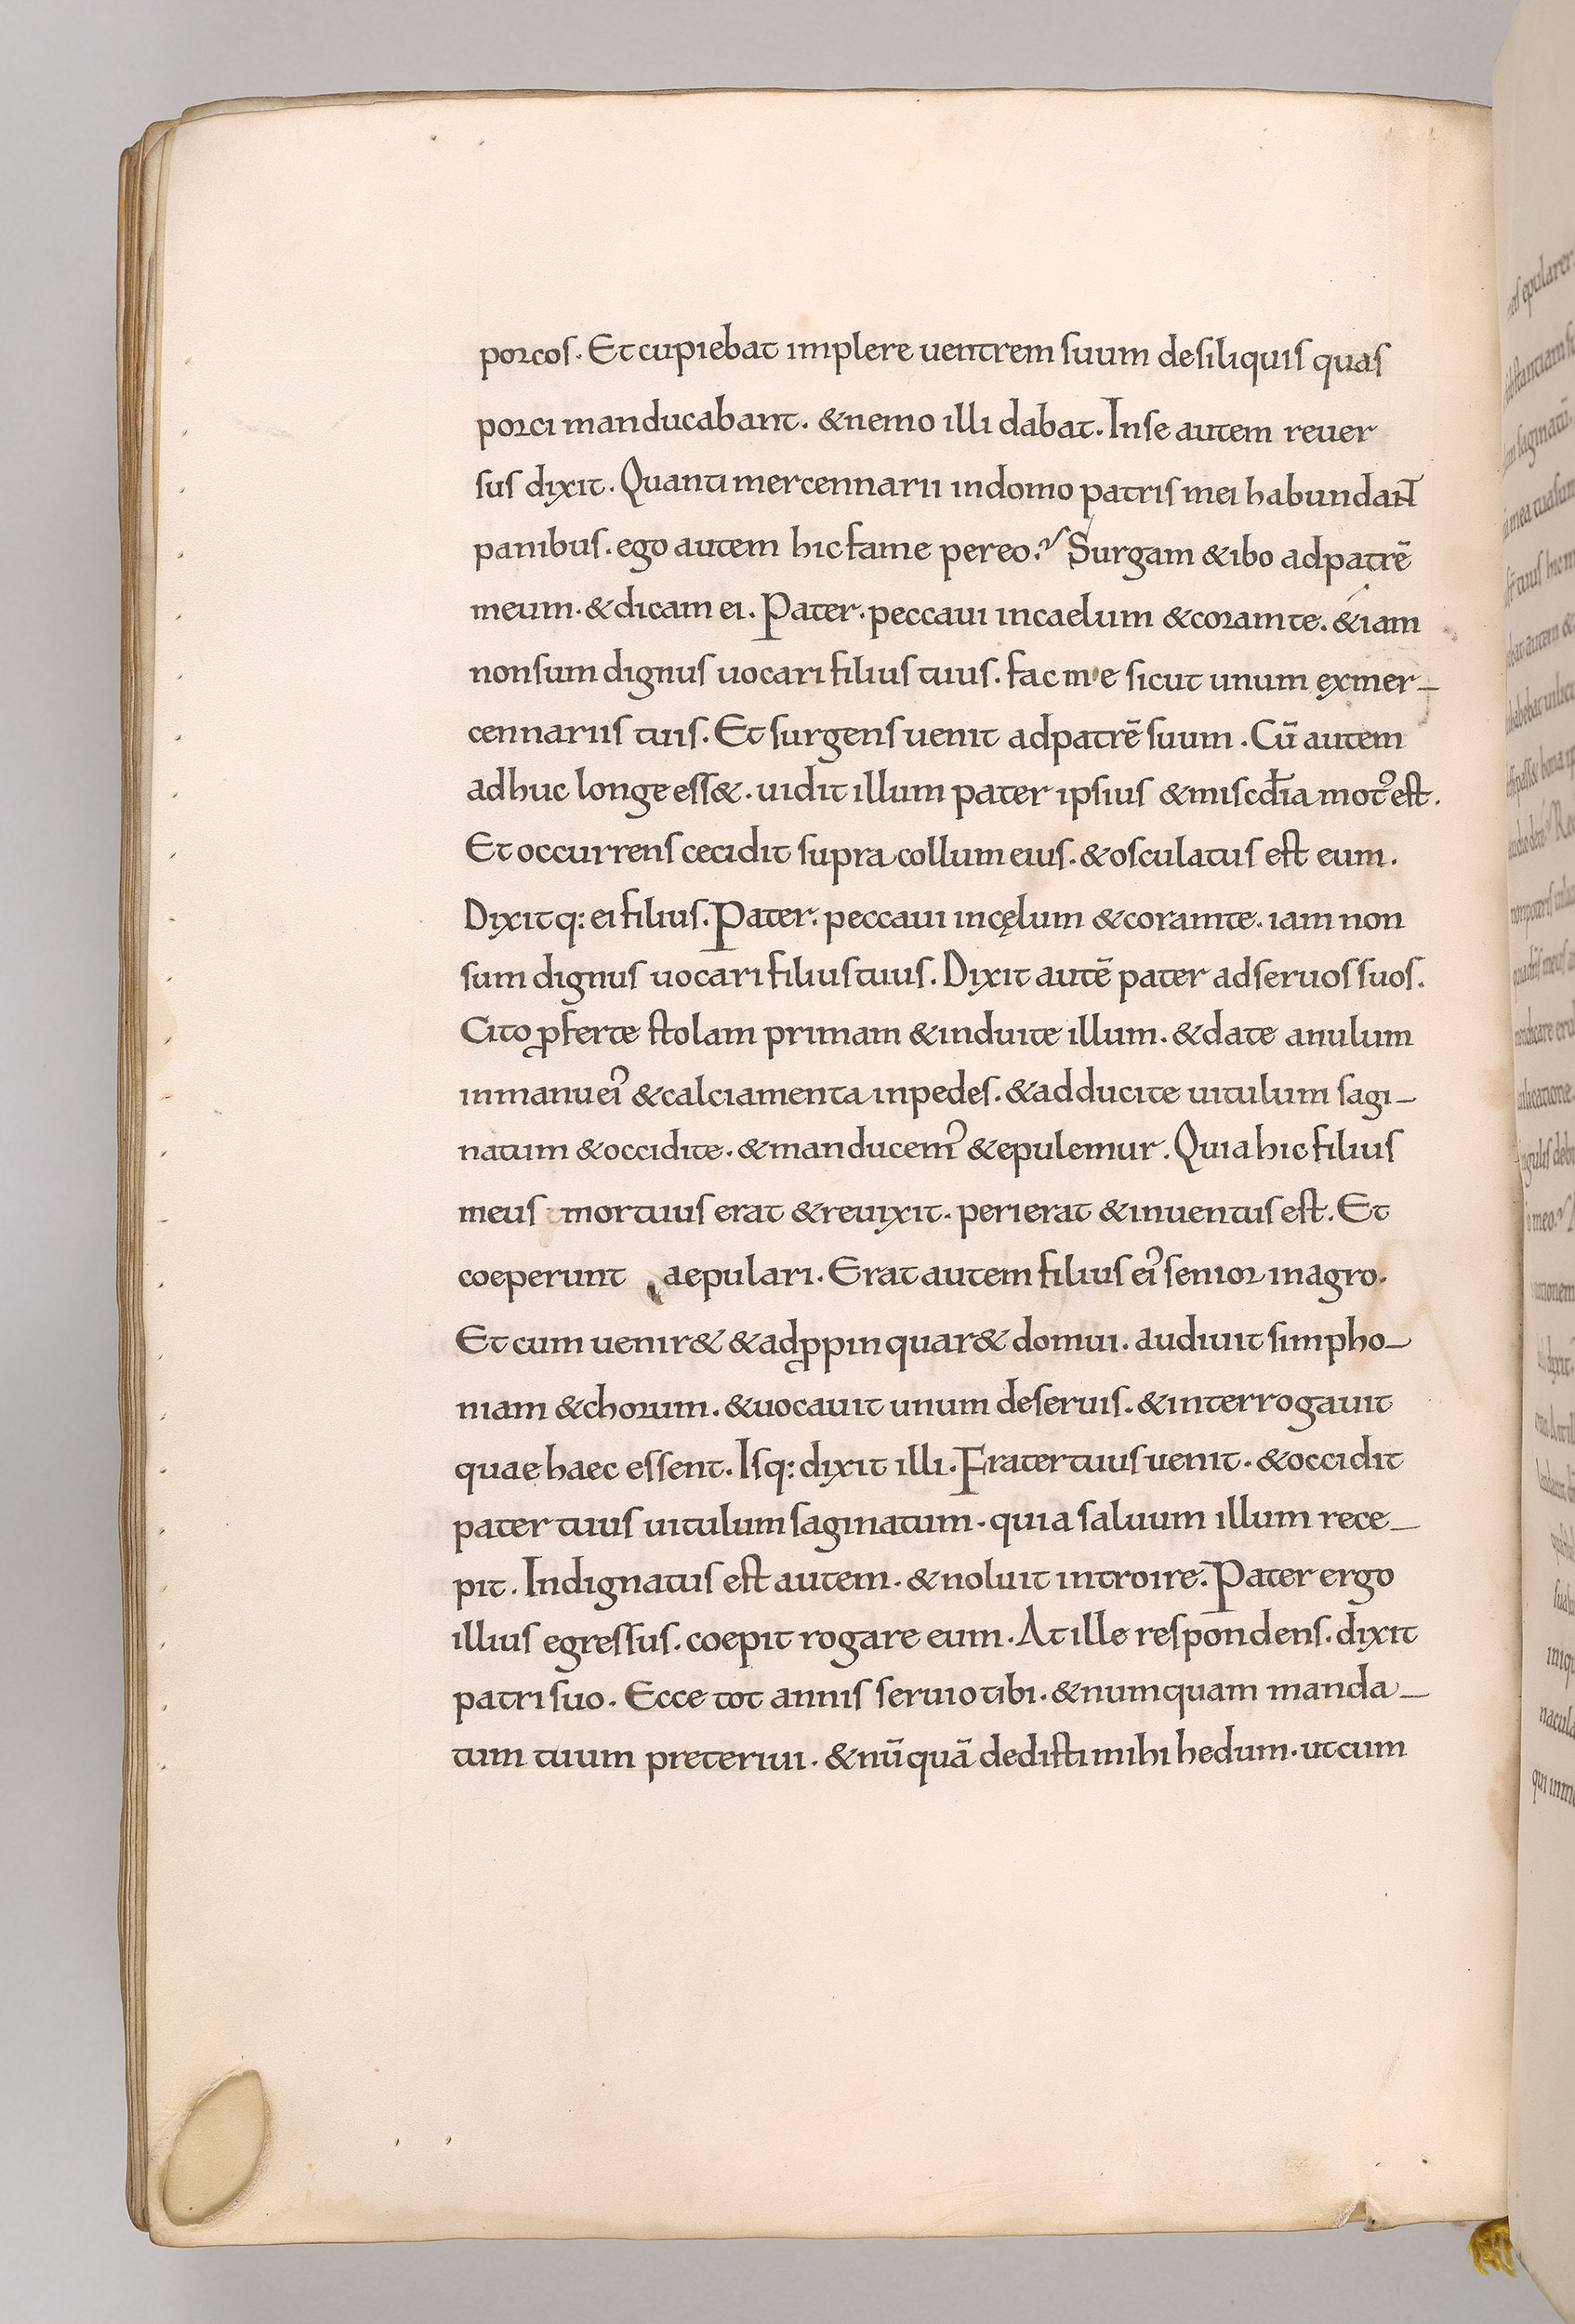 porcos. Et cupiebat implere uentrem suum de siliquis quas
porci manducabant. & nemo illi dabat. In se autem reuer
sus dixit. Quanti mercennarii in domo patris mei habundant
panibus. ego autem hic fame pereo? Surgam & ibo ad patrē
meum. & dicam ei. Pater. peccaui in caelum & coram te. & iam
non sum dignus uocari filius tuus. fac me sicut unum ex mer-
cennariis tuis. Et surgens uenit ad patrē suum. Cū autem
adhuc longe ess&. uidit illum pater ipsius & miscdīa motꝰ est.
Et occurrens cecidit supra collum eius. & osculatus est eum.
Dixitq: ei filius. Pater. peccaui in cęlum & coram te. iam non
sum dignus uocari filius tuus. Dixit autē pater ad seruos suos.
Cito ꝓferte stolam primam & induite illum. & date anulum
in manu eiꝰ & calciamenta in pedes. & adducite uitulum sagi-
natum & occidite. & manducemꝰ & epulemur. Quia hic filius
meus mortuus erat & reuixit. perierat & inuentus est. Et
coeperunt aepulari. Erat autem filius eiꝰ senior in agro.
Et cum uenir& & adꝓpinquar& domui. audiuit simpho-
niam & chorum. & uocauit unum de seruis. & interrogauit
quae haec essent. Isq: dixit illi. Frater tuus uenit. & occidit
pater tuus uitulum saginatum. quia saluum illum rece-
pit. Indignatus est autem. & noluit introire. Pater ergo
illius egressus. coepit rogare eum. At ille respondens. dixit
patri suo. Ecce tot annis seruio tibi. & numquam manda-
tum tuum preteriui. & nūquā dedisti mihi hedum. ut cum